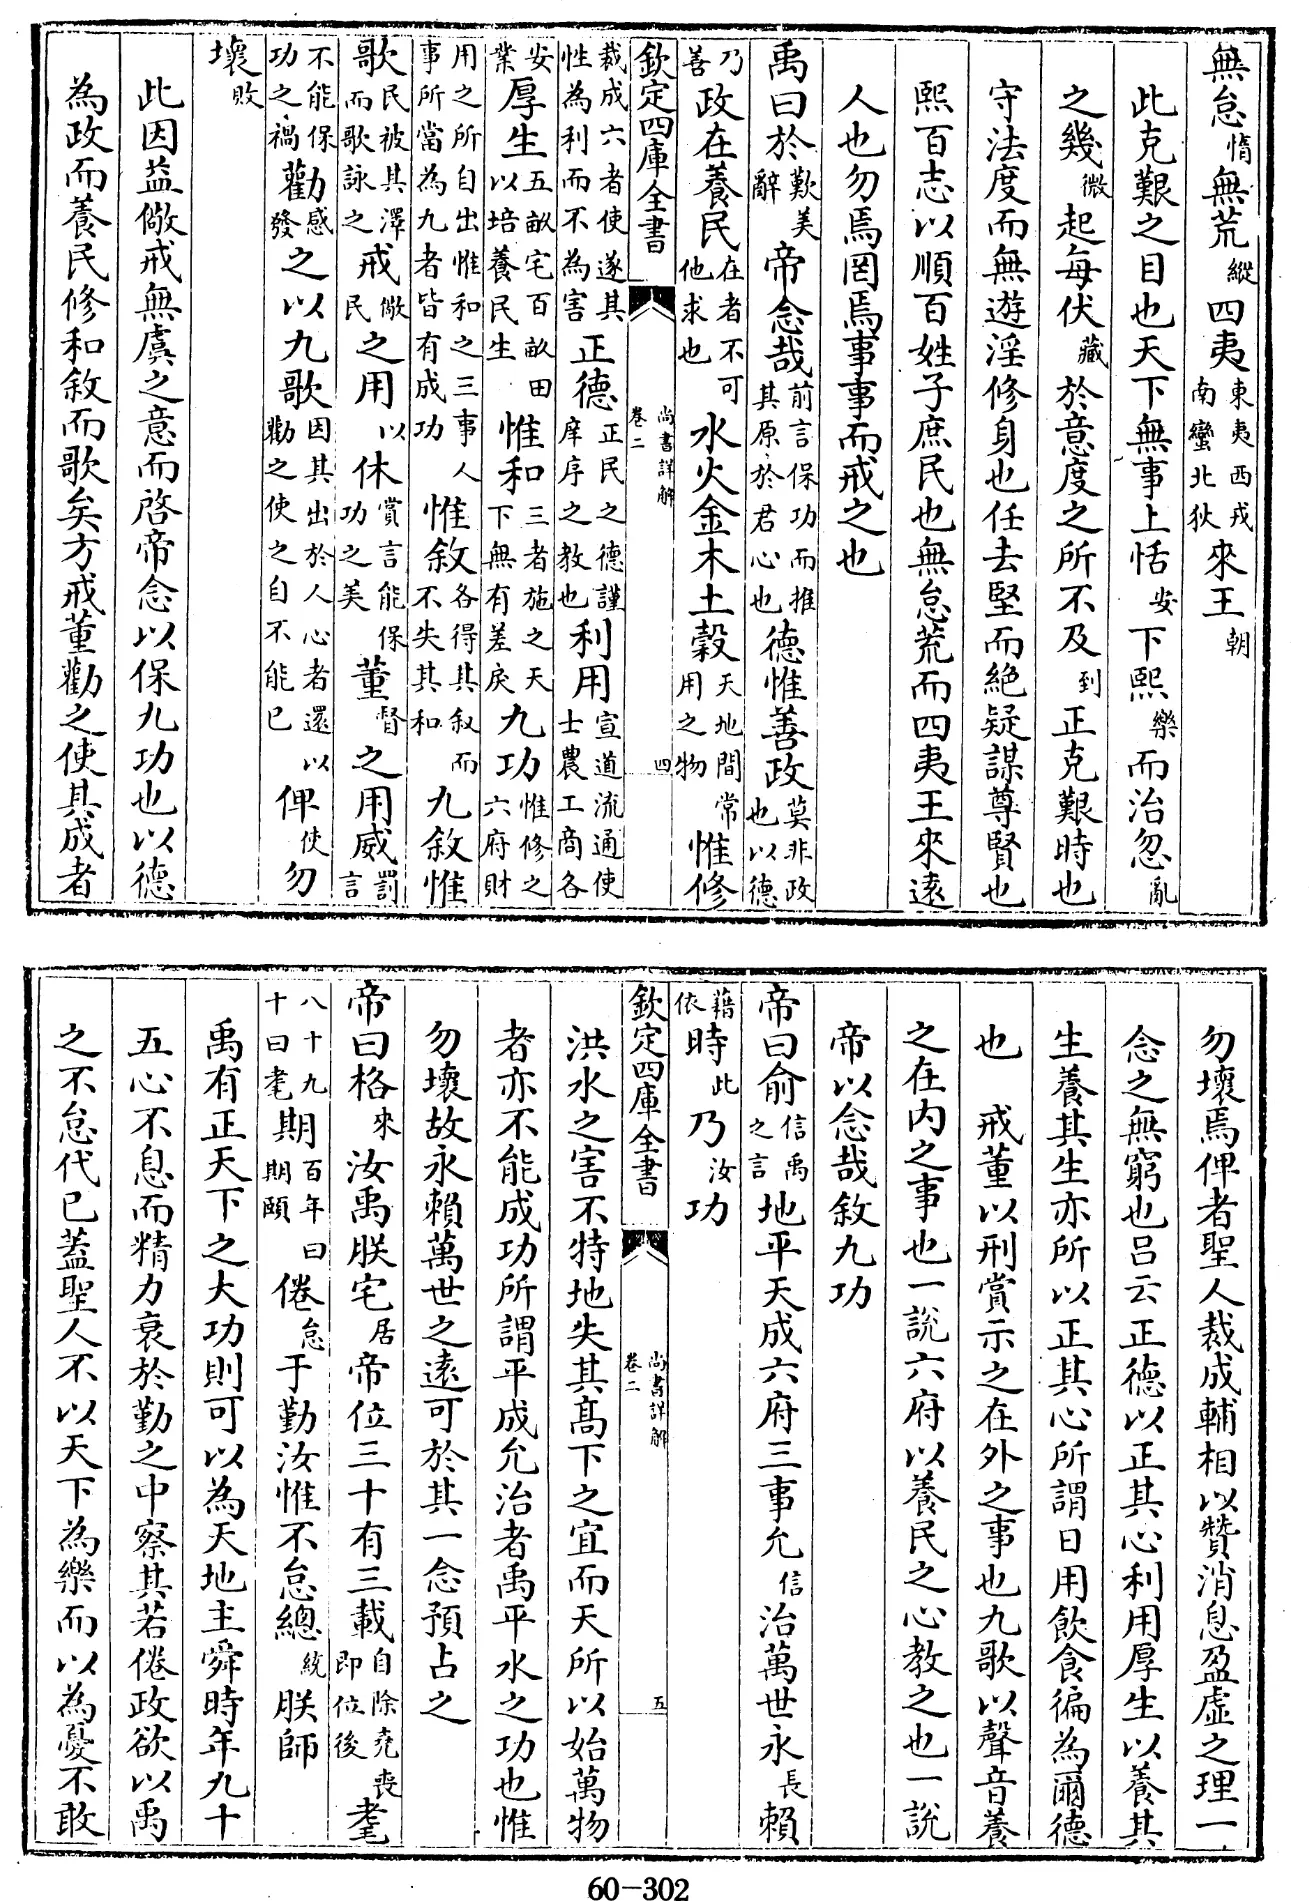 無怠惰無荒縱四夷東夷西戎南蠻北狄來王朝
此克艱之目也天下無事上恬安下熙樂而治忽亂
之幾微起每伏藏於意度之所不及到正克艱時也
守法度而無遊淫修身也任去堅而絶疑謀尊賢也
熙百志以順百姓子庶民也無怠荒而四夷王來遠
人也勿焉罔焉事事而戒之也
禹曰於歎美辭帝念哉前言保功而推其原於君心也德惟善政莫非政也以德
乃善政在養民在者不可他求也水火金木土穀天地間常用之物惟修
欽定四庫全書 尚書詳解 卷二 四
裁成六者使遂其性為利而不為害正德正民之德謹庠序之教也利用宣道流通使士農工商各
安業厚生五畝宅百畝田以培養民生惟和三者施之天下無有差戾九功惟修之六府財
用之所自出惟和之三事人事所當為九者皆有成功惟敘各得其叙而不失其和九敘惟
歌民被其澤而歌詠之戒儆民之用以休賞言能保功之美董督之用威罰言
不能保功之禍勸感發之以九歌因其出於人心者還以勸之使之自不能已俾使勿
壞敗
此因益儆戒無虞之意而啓帝念以保九功也以德
為政而養民修和敘而歌矣方戒董勸之使其成者
勿壞焉俾者聖人裁成輔相以贊消息盈虛之理一
念之無窮也呂云正德以正其心利用厚生以養其
生養其生亦所以正其心所謂日用飲食徧為爾德
也 戒董以刑賞示之在外之事也九歌以聲音養
之在内之事也一說六府以養民之心教之也一說
帝以念哉敘九功
帝曰俞信禹之言地平天成六府三事允信治萬世永長賴
藉依時此乃汝功
欽定四庫全書 尚書詳解 卷二 五
洪水之害不特地失其高下之宜而天所以始萬物
者亦不能成功所謂平成允治者禹平水之功也惟
勿壞故永賴萬世之遠可於其一念預占之
帝曰格來汝禹朕宅居帝位三十有三載自除堯喪即位後耄
八十九十曰耄期百年曰期頤倦怠于勤汝惟不怠總統朕師
禹有正天下之大功則可以為天地主舜時年九十
五心不息而精力衰於勤之中察其若倦政欲以禹
之不怠代已蓋聖人不以天下為樂而以為憂不敢
60-302